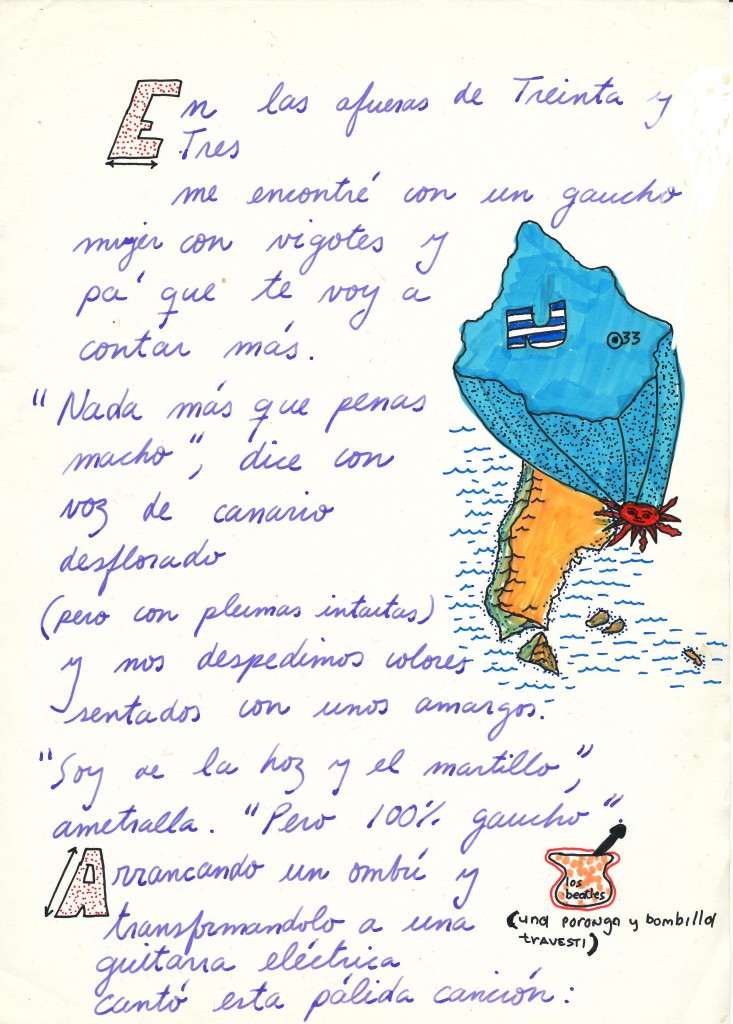 En las afueras de Treinta y
Tres
me encontré con un gaucho
mujer con vigotes y
pa' que te voy a
contar más.
"Nada más que penas
macho", dice con
voz de canario
desflorado
(pero con plumas intactas)
y nos despedimos colores
sentados con unos amargos.
"Soy de la hoz y el martillo",
ametralla. "Pero 100% gaucho".
Arrancando un ombú y
transformandolo a una
guitarra eléctrica
cantó esta pálida canción:
U
33
los
beatles
(una poronga y bombilla
travesti)